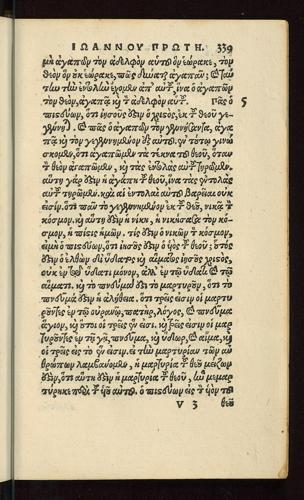 ΙΩΑΝΝΟΥ ΠΡΩΤΗ. 339
μὴ ἀγαπῶν τὸν ἀδελφὸν αὐτοῦ ὃν ἑώρακε, τὸν
θεὸν ὃν οὐχ ἑώρακε, πῶς δύναται ἀγαπᾶν; καὶ ταύ
την τὴν ἐντολὴν ἔχομεν ἀπ' αὐτοῦ, ἵνα ὁ ἀγαπῶν
τὸν θεὸν, ἀγαπᾷ καὶ τὸν ἀδελφὸν αὐτοῦ. Πᾶς ὁ 5
πιστεύων, ὅτι ἰησοῦς ἐστιν ὁ χριστὸς, ἐκ τοῦ θεοῦ γεγέ
ννηται. καὶ πᾶς ὁ ἀγαπῶν τὸν γεννήσαντα, ἀγα
πᾷ καὶ τὸν γεγεννημένον ἐξ αὐτοῦ. ἐν τούτῳ γινώ
σκομεν, ὅτι ἀγαπῶμεν τὰ τέκνα τοῦ θεοῦ, ὅταν
τὸν θεὸν ἀγαπῶμεν, καὶ τὰς ἐντολὰς αὐτοῦ τηρῶμεν.
αὕτη γάρ ἐστιν ἡ ἀγάπη τοῦ θεοῦ, ἵνα τὰς ἐντολὰς
αὐτοῦ τηρῶμεν. καὶ αἱ ἐντολαὶ αὐτοῦ βαρεῖαι οὐκ
εἰσίν. ὅτι πᾶν τὸ γεγεννημένον ἐκ τοῦ θεοῦ, νικᾷ τὸν
κόσμον. καὶ αὕτη ἐστὶν ἡ νίκη, ἡ νικήσασα τὸν κό
σμον, ἡ πίστις ἡμῶν. τίς ἐστιν ὁ νικῶν τὸν κόσμον,
εἰ μὴ ὁ πιστεύων, ὅτι ἰησοῦς ἐστιν ὁ υἱὸς τοῦ θεοῦ; οὗτός
ἐστιν ὁ ἐλθὼν δι' ὕδατος καὶ αἵματος ἰησοῦς ὁ χριστός,
οὐκ ἐν τῷ ὕδατι μόνον, ἀλλ' ἐν τῷ ὕδατι καὶ τῷ
αἵματι. καὶ τὸ πνεῦμά ἐστι τὸ μαρτυροῦν, ὅτι τὸ
πνεῦμά ἐστιν ἡ ἀλήθεια. ὅτι τρεῖς εἰσιν οἱ μαρτυ
ροῦντες ἐν τῷ οὐρανῷ, πατὴρ, λόγος, καὶ πνεῦμα
ἅγιον, καὶ οὗτοι οἱ τρεῖς ἕν εἰσι. καὶ τρεῖς εἰσιν οἱ μαρ
τυροῦντες ἐν τῇ γῇ, πνεῦμα, καὶ ὕδωρ, καὶ αἷμα, καὶ
οἱ τρεῖς εἰς τὸ ἕν εἰσιν. εἰ τὴν μαρτυρίαν τῶν ἀν
θρώπων λαμβάνομεν, ἡ μαρτυρία τοῦ θεοῦ μείζων
ἐστὶν, ὅτι αὕτη ἐστὶν ἡ μαρτυρία τοῦ θεοῦ, ἣν μεμαρ
τύρηκε περὶ τοῦ υἱοῦ αὐτοῦ. ὁ πιστεύων εἰς τὸν υἱὸν τοῦ
V 3 θεοῦ